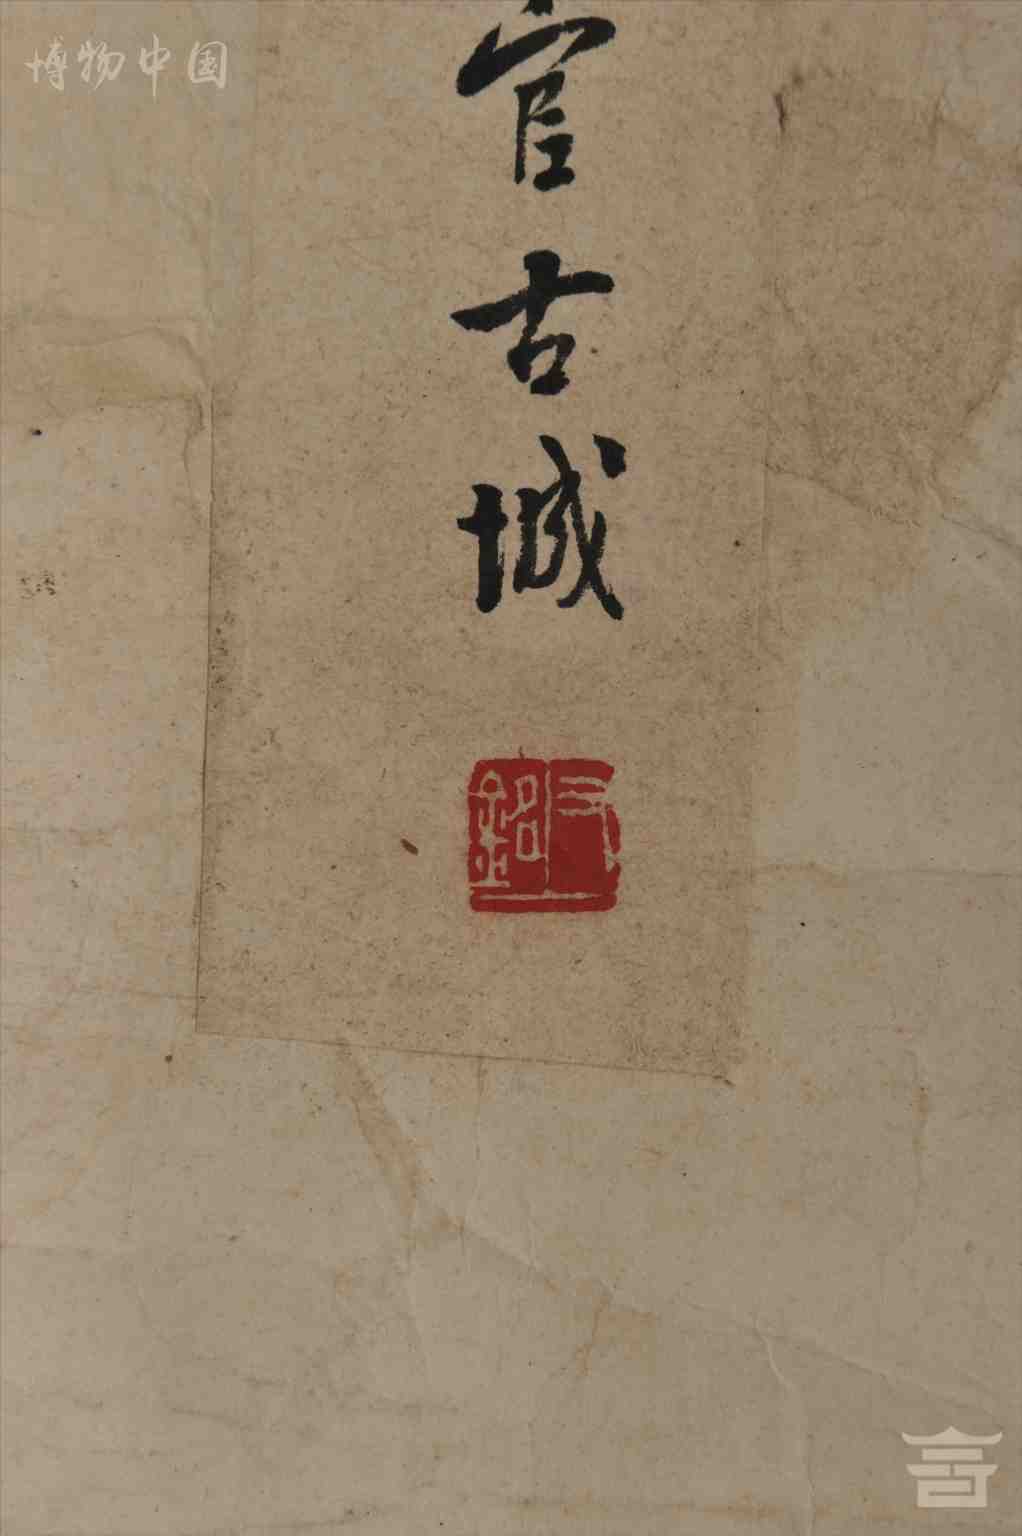 博物中国
官古城